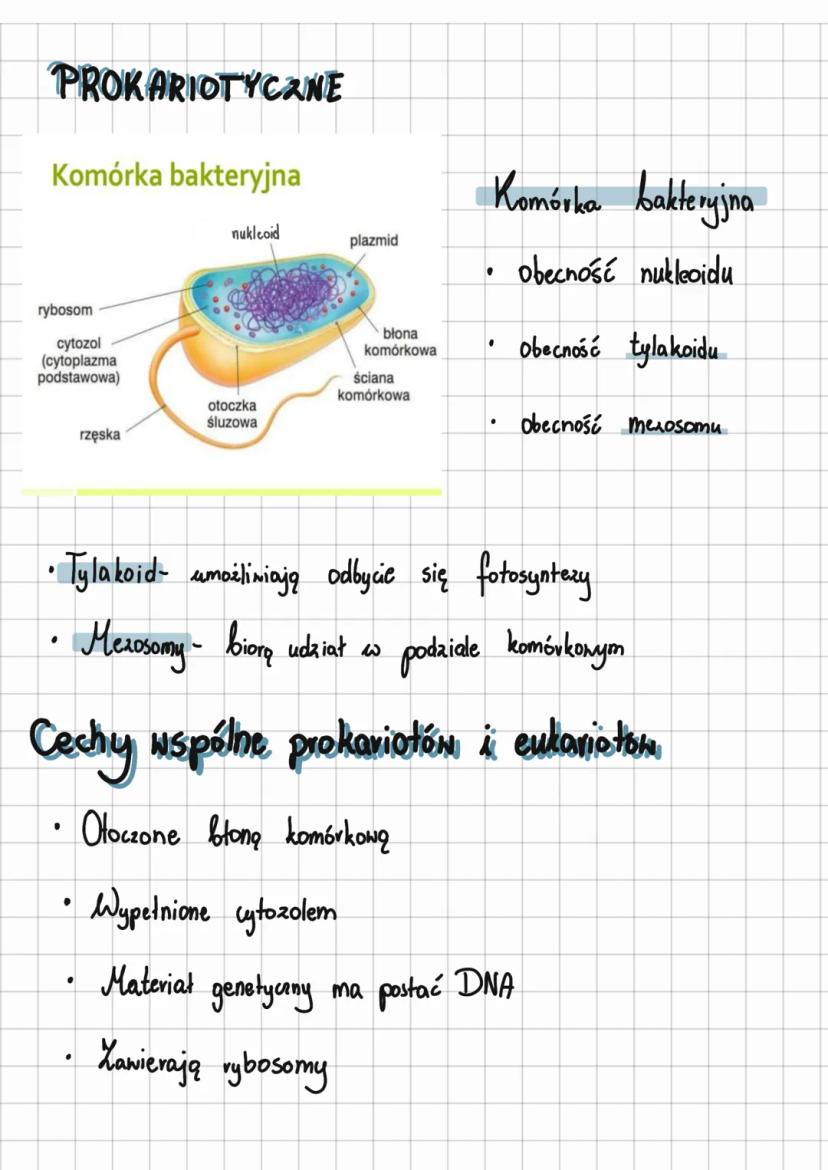 PROKARIOTYCZNE
Komórka bakteryjna
nukleoid
plazmid
rybosom
cytozol
(cytoplazma
podstawowa)
błona
komórkowa
ściana
komórkowa
otoczka
śluzowa
rzęska
Komórka bakteryjna
• obecność nukleoidu
• obecność tylakoidu
• obecność mezosomu
• Tylakoid- umożliwiają odbycie się fotosyntezy
• Mezosomy- biorą udział w podziale komórkowym
Cechy wspólne prokariotów i eukariotów
• Otoczone błoną komórkową
• Wypełnione cytozolem
• Materiał genetyczny ma postać DNA
• Zawierają rybosomy